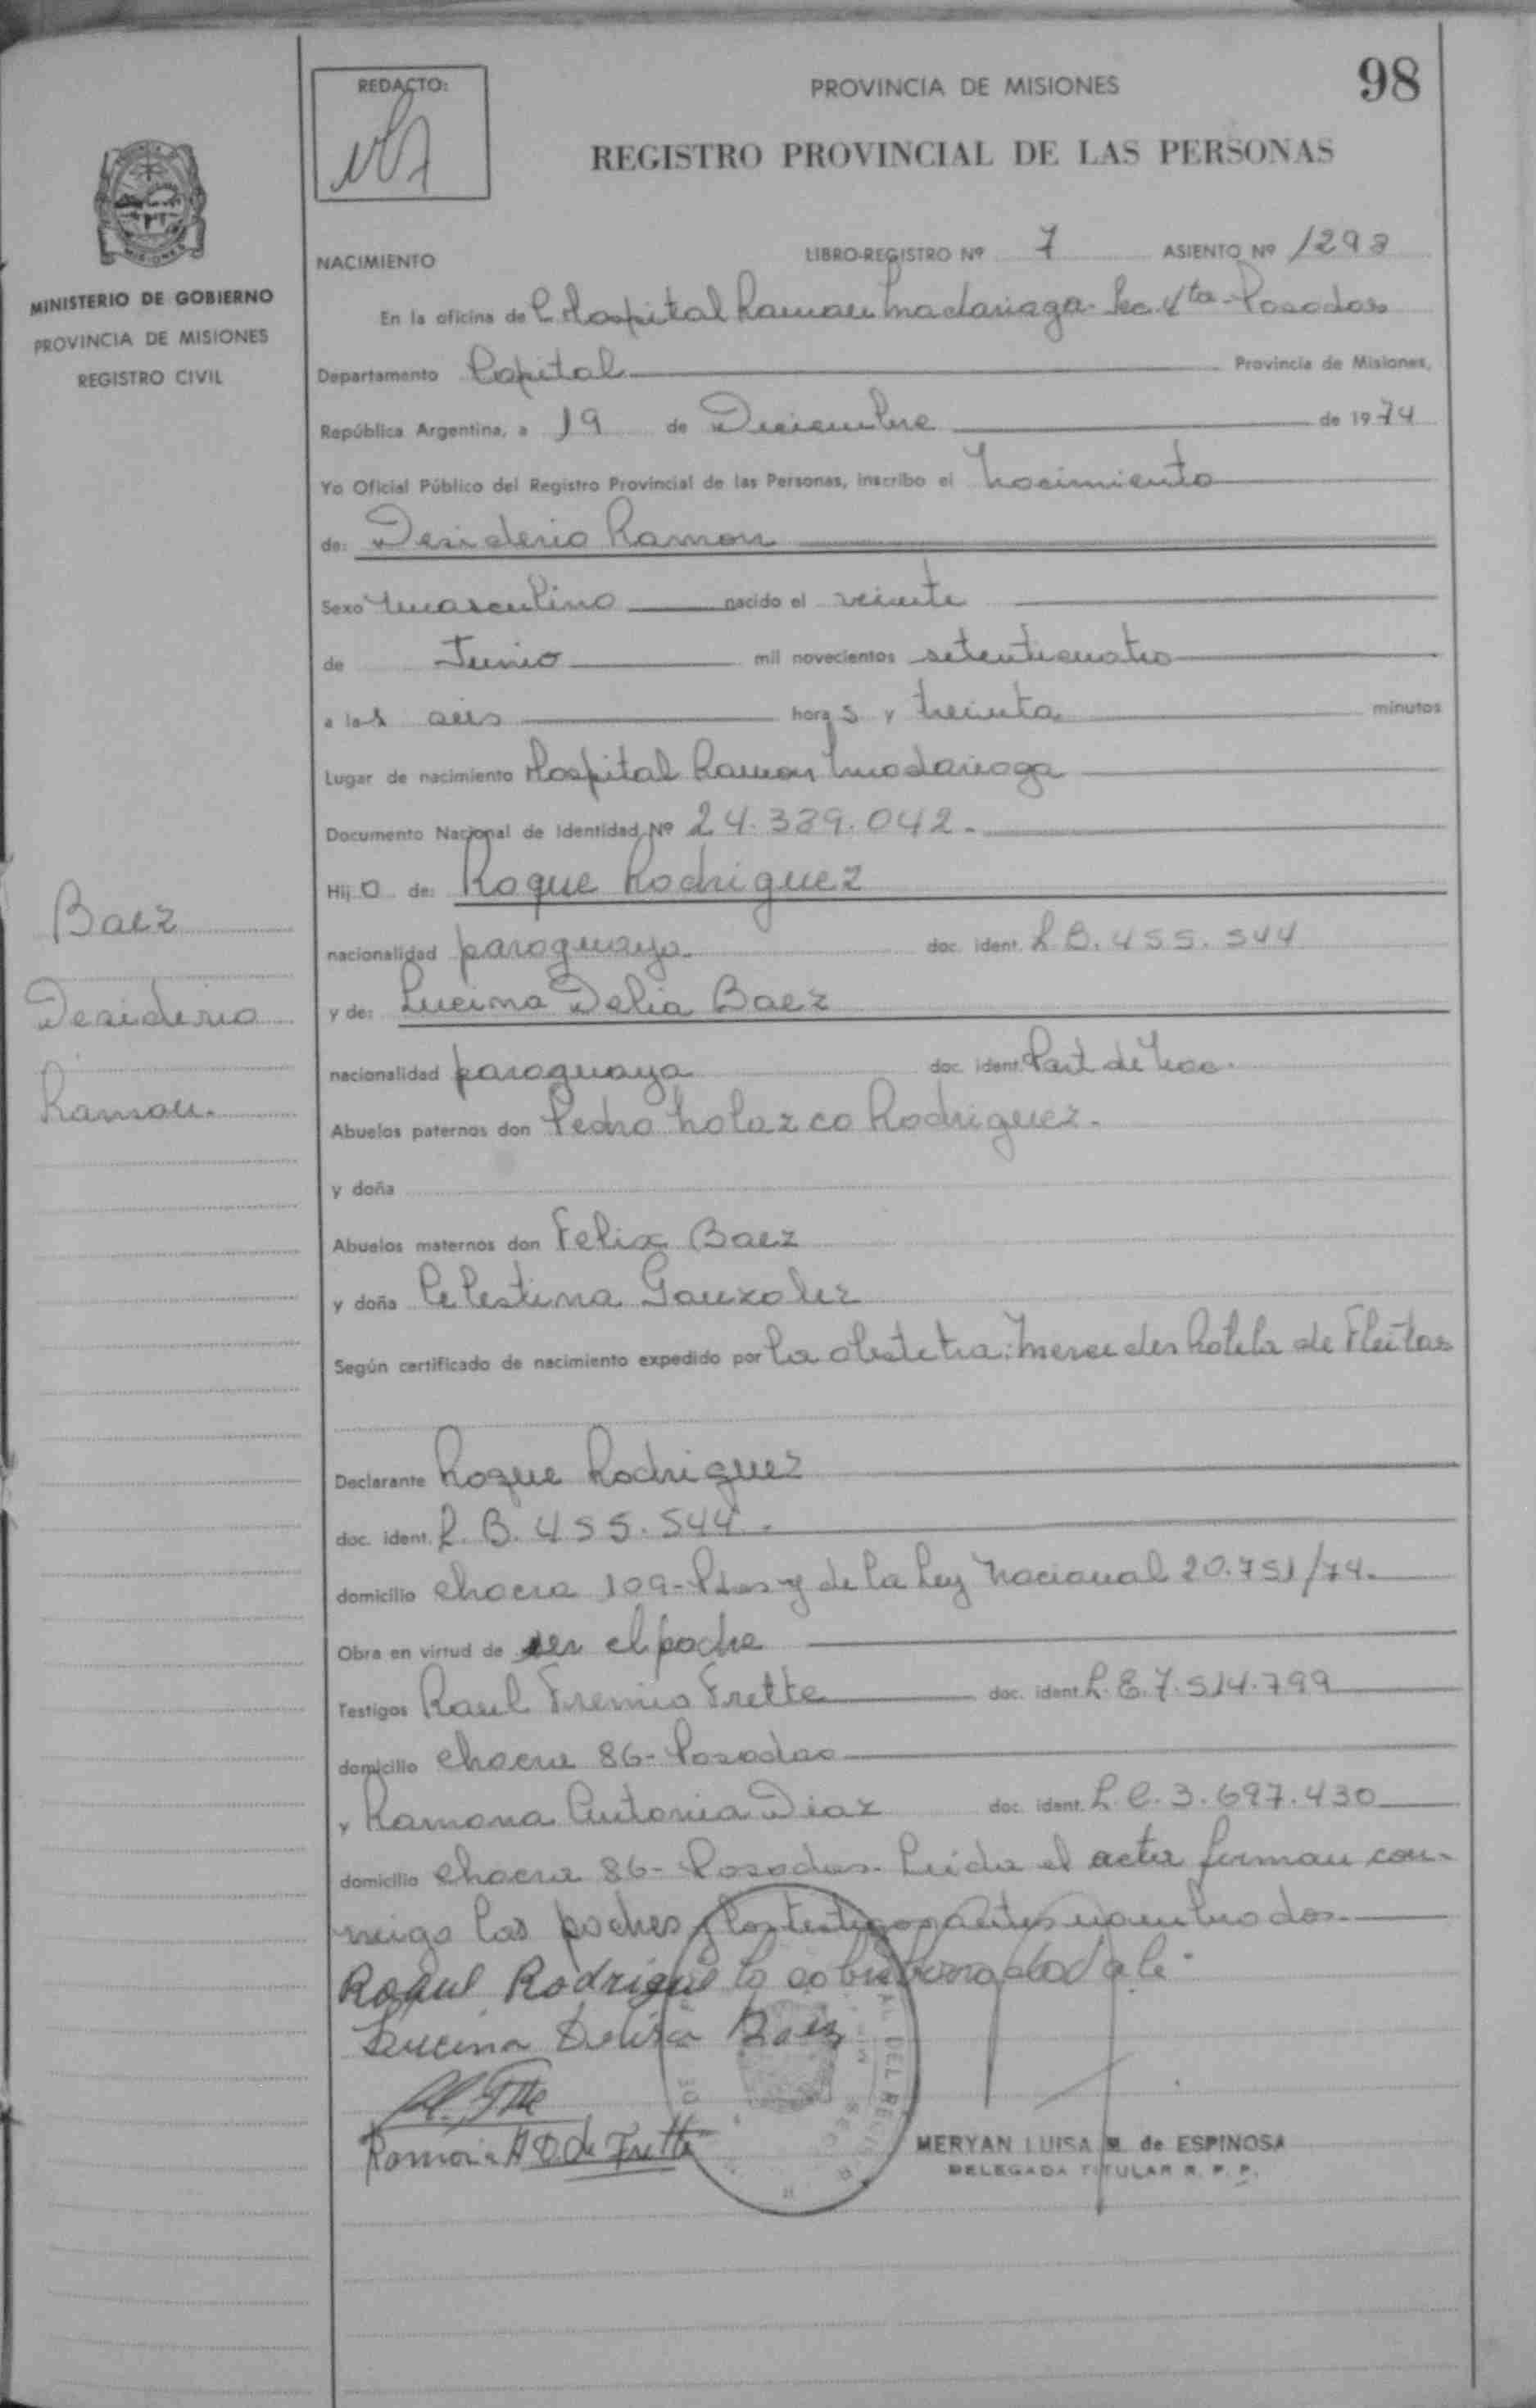 REDACTO:
PROVINCIA DE MISIONES
98
REGISTRO PROVINCIAL DE LAS PERSONAS
MINISTERIO DE GOBIERNO
PROVINCIA DE MISIONES
REGISTRO CIVIL
NACIMIENTO LIBRO-REGISTRO Nº 7 ASIENTO Nº 1293
En la oficina de Hospital Ramon Madariaga - Sec. 4ta - Posadas
Departamento Capital Provincia de Misiones,
República Argentina, a 19 de Diciembre de 1974
Yo Oficial Público del Registro Provincial de las Personas, inscribo el Nacimiento
de: Desiderio Ramon
Sexo Masculino nacido el veinte
de Junio mil novecientos setenticuatro
a las seis horas y treinta minutos
Lugar de nacimiento Hospital Ramon Madariaga
Documento Nacional de Identidad Nº 24.339.042.
Hijo de: Roque Rodriguez
nacionalidad paraguaya doc. ident. L.B. 455.544
y de: Lucina Delia Baez
nacionalidad paraguaya doc. ident. Part de Nac.
Abuelos paternos don Pedro Nolazco Rodriguez.
y doña
Abuelos maternos don Felix Baez
y doña Celestina Gonzalez
Según certificado de nacimiento expedido por la obstetra: Mercedes Rotela de Fleitas
Declarante Roque Rodriguez
doc. ident. L.B. 455.544.
domicilio chacra 109 - Pdas y de la Ley Nacional 20.751/74.
Obra en virtud de ser el padre
Testigos Raul Fremio Frette doc. ident. L.E. 7.514.799
domicilio chacra 86 - Posadas
y Ramona Antonia Diaz doc. ident. L.C. 3.697.430
domicilio chacra 86 - Posadas. Leída el acta firman con-
migo los padres y los testigos antes nombrados.
Roque Rodrigue
Lucina Delisa Baez
Ramona A D. de Frette
MERYAN LUISA M. de ESPINOSA
DELEGADA TITULAR R. P. P.
Baez
Desiderio
Ramon.